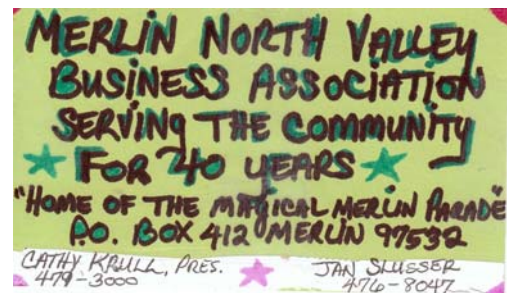 MERLIN NORTH VALLEY
BUSINESS ASSOCIATION
SERVING THE COMMUNITY
FOR 40 YEARS
"HOME OF THE MAGICAL MERLIN PARADE"
P.O. BOX 412 MERLIN 97532
CATHY KRULL, PRES. JAN SLUSSER
479-3000 476-8047